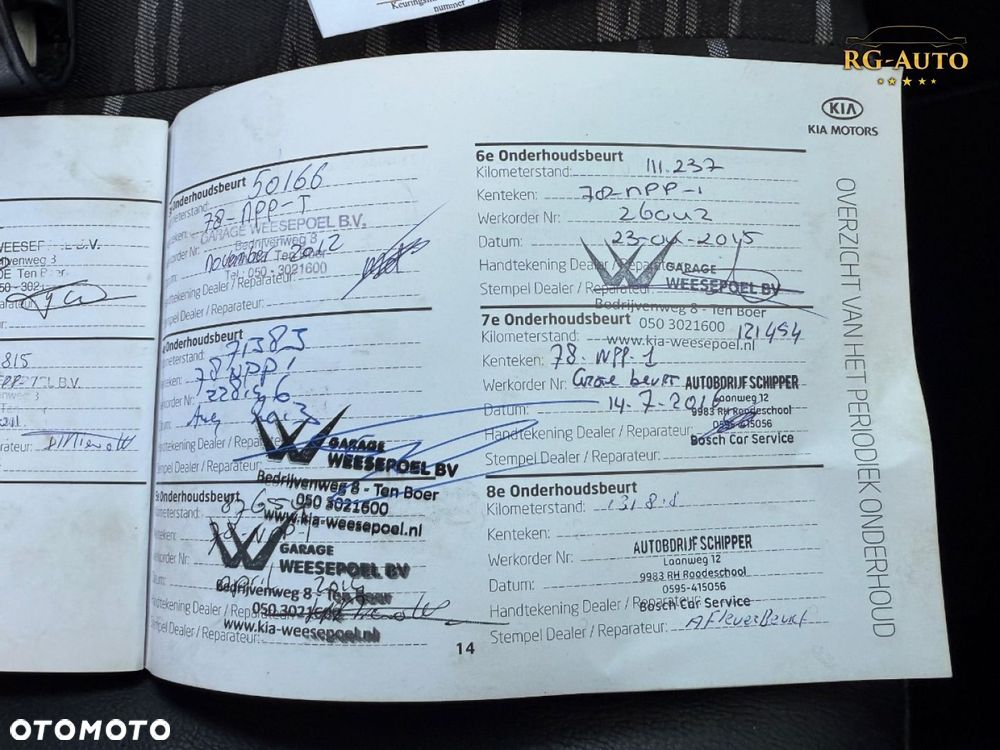 Keuringsin
nummer
RG-AUTO
KIA
KIA MOTORS
OVERZICHT VAN HET PERIODIEK ONDERHOUD
B.V.
050 - 302
Ten Boer
815
B.V.
Onderhoudsbeurt 50166
meterstand:
78-NPP-1
GARAGE WEESEPOEL B.V.
Bedrijvenweg 8
Ten Boer
november 2012
Tel: 050 - 3021600
dtekening Dealer / Reparateur:
mpel Dealer / Reparateur:
Onderhoudsbeurt
meterstand: 71383
78 NPP 1
korder Nr:
Aug 2013
ndtekening Dealer / Reparateur:
empel Dealer / Reparateur:
GARAGE
WEESEPOEL BV
Bedrijvenweg 8 - Ten Boer
050 3021600
www.kia-weesepoel.nl
Onderhoudsbeurt
ometerstand:
GARAGE
WEESEPOEL BV
april 2014
Bedrijvenweg 8 - Ten Boer
Handtekening Dealer / Reparateur:
050 3021600
www.kia-weesepoel.nl
Stempel Dealer / Reparateur:
6e Onderhoudsbeurt
Kilometerstand: 111.237
Kenteken: 78-NPP-1
Werkorder Nr:
Datum:
Handtekening Dealer / Reparateur:
Stempel Dealer / Reparateur:
GARAGE
WEESEPOEL BV
Bedrijvenweg 8 - Ten Boer
050 3021600
www.kia-weesepoel.nl
7e Onderhoudsbeurt
Kilometerstand: 121494
Kenteken: 78-NPP-1
Werkorder Nr: Grote beurt
AUTOBDRIJF SCHIPPER
Laanweg 12
Datum: 14-7-2016
9983 RH Roodeschool
0595-415056
Handtekening Dealer / Reparateur:
Bosch Car Service
Stempel Dealer / Reparateur:
8e Onderhoudsbeurt
Kilometerstand:
Kenteken:
Werkorder Nr:
AUTOBDRIJF SCHIPPER
Laanweg 12
Datum:
9983 RH Roodeschool
0595-415056
Handtekening Dealer / Reparateur:
Bosch Car Service
Stempel Dealer / Reparateur: Afleverbeurt
14
OTOMOTO